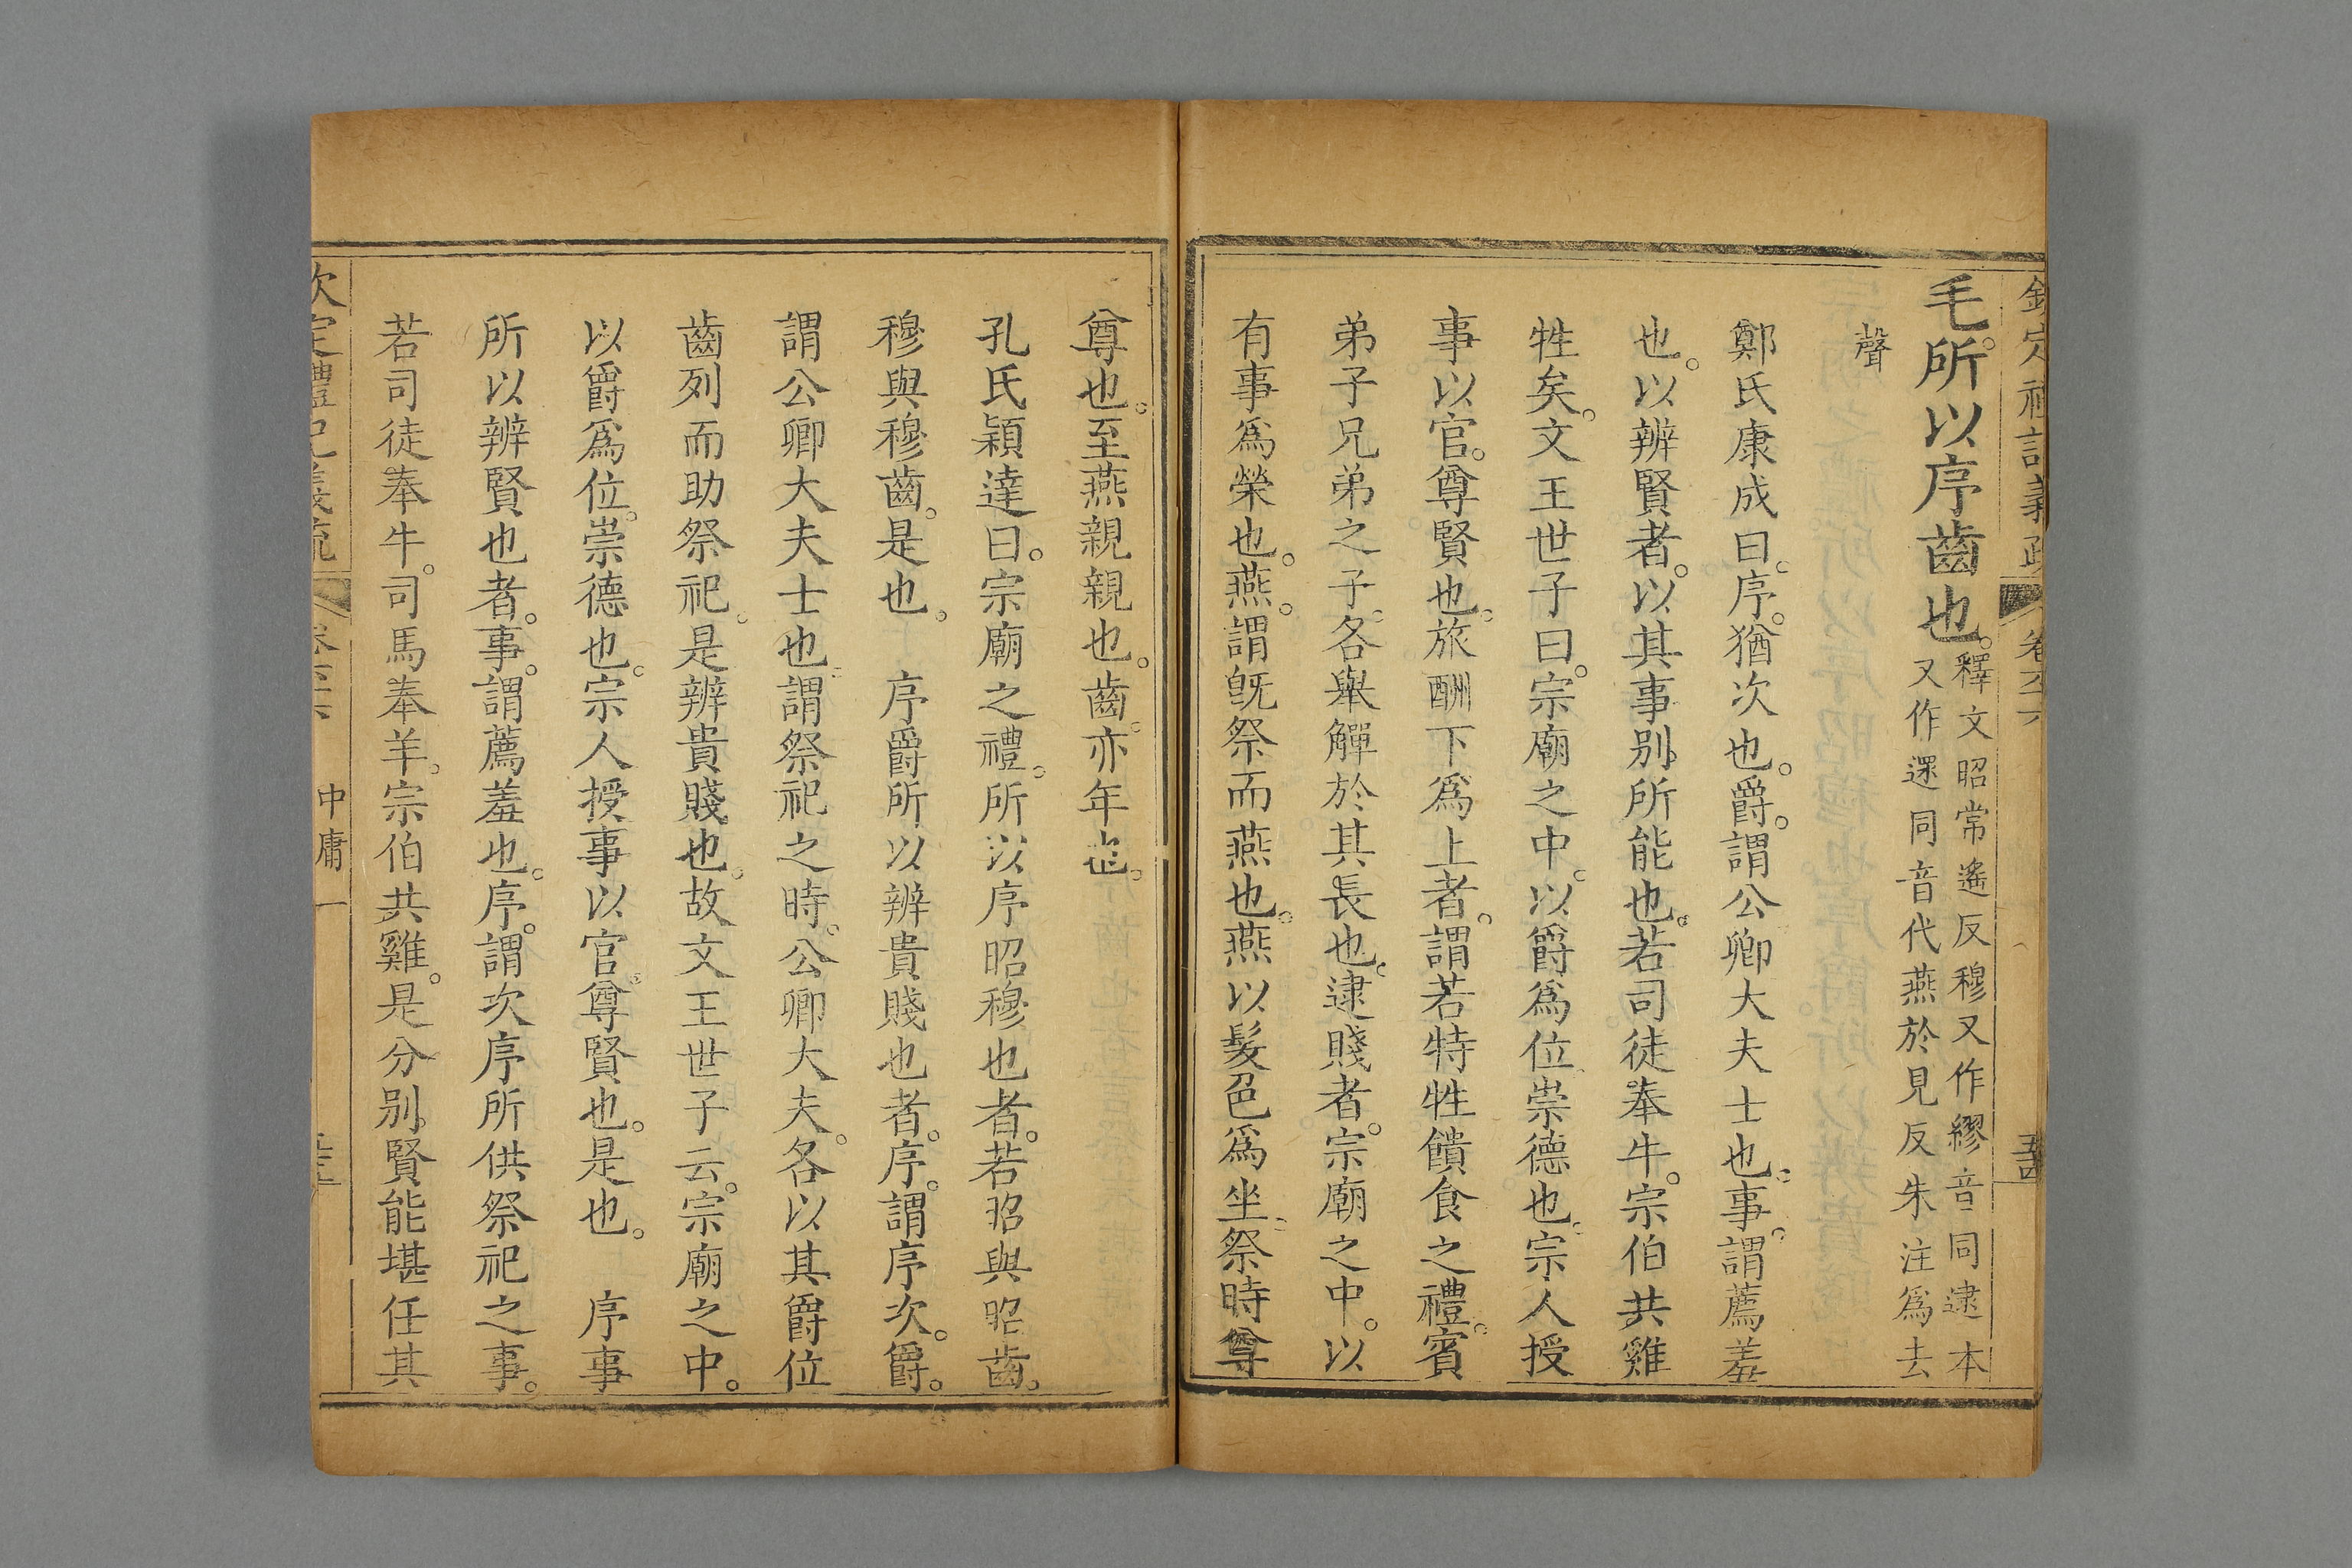 欽定禮記義疏 卷六十六 五十四
毛。所以序齒也。釋文昭常遙反穆又作繆音同逮本
又作遝同音代燕於見反朱注爲去
聲
鄭氏康成曰。序。猶次也。爵。謂公卿大夫士也。事。謂薦羞
也。以辨賢者。以其事別所能也。若司徒奉牛。宗伯共雞
牲矣。文王世子曰。宗廟之中。以爵爲位。崇德也。宗人授
事以官。尊賢也。旅酬下爲上者。謂若特牲饋食之禮。賓
弟子兄弟之子。各舉觶於其長也。逮賤者。宗廟之中。以
有事爲榮也。燕。謂旣祭而燕也。燕以髮色爲坐。祭時尊
尊也。至燕親親也。齒。亦年也。
孔氏穎達曰。宗廟之禮。所以序昭穆也者。若昭與昭齒。
穆與穆齒。是也。 序爵所以辨貴賤也者。序。謂序次。爵。
謂公卿大夫士也。謂祭祀之時。公卿大夫。各以其爵位
齒列而助祭祀。是辨貴賤也。故文王世子云。宗廟之中。
以爵爲位。崇德也。宗人授事以官。尊賢也。是也。 序事
所以辨賢也者。事。謂薦羞也。序。謂次序所供祭祀之事。
若司徒奉牛。司馬奉羊。宗伯共雞。是分別賢能堪任其
欽定禮記義疏 中庸一